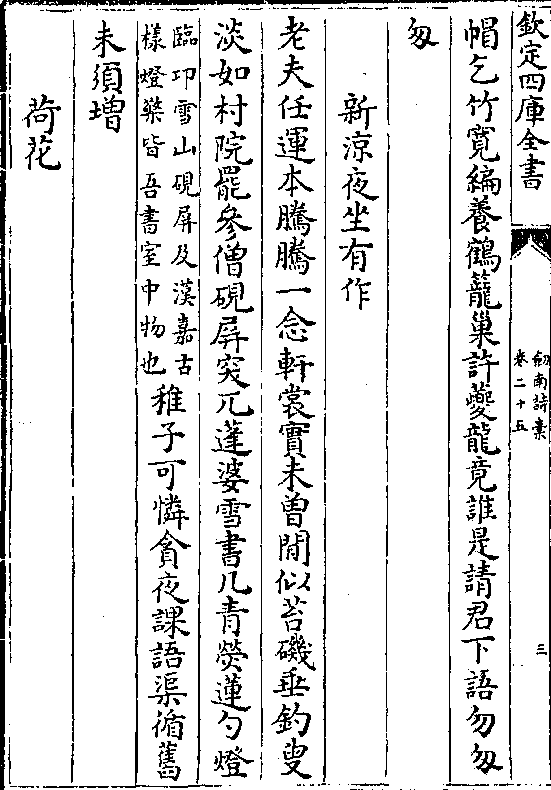 欽定四庫全書
劔南詩藁
卷二十五
三
帽乞竹寛編養鶴籠巢許夔龍竟誰是請君下語勿匆
匆
新涼夜坐有作
老夫任運本騰騰一念軒裳實未曽閒似苔磯垂釣叟
淡如村院罷參僧硯屏突兀蓬婆雪書几青熒蓮勺燈
臨卭雪山硯屏及漢嘉古
樣燈檠皆吾書室中物也
稚子可憐貪夜課語渠循舊
未須増
荷花